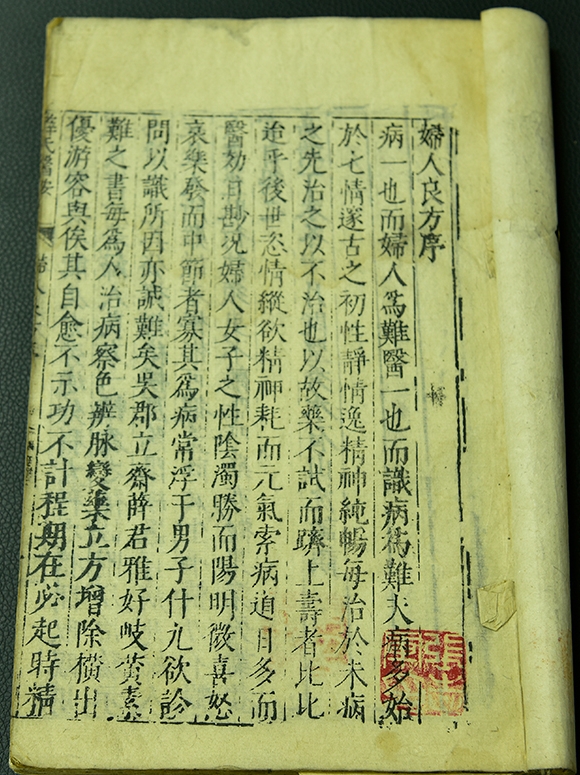 婦人良方序
病一也而婦人爲難醫一也而識病爲難夫病多始
於七情邃古之初性靜情逸精神純暢每治於未病
之先治之以不治也以故藥不試而躋上壽者比比
迨乎後世恣情縱欲精神耗而元氣索病道日多而
醫効日尠況婦人女子之性陰濁勝而陽明微喜怒
哀樂發而中節者寡其爲病常浮于男子什九欲診
問以識所因亦誠難矣吳郡立齋薛君雅好岐黃素
難之書每爲人治病察色辨脉變藥立方增除橫出
優游容與俟其自愈不示功不計程期在必起時精
薛氏醫按
婦人良方序